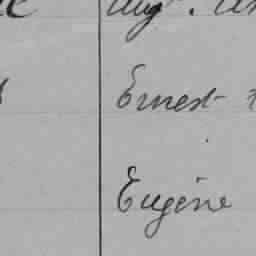 Aug.
Ernest
Eugène